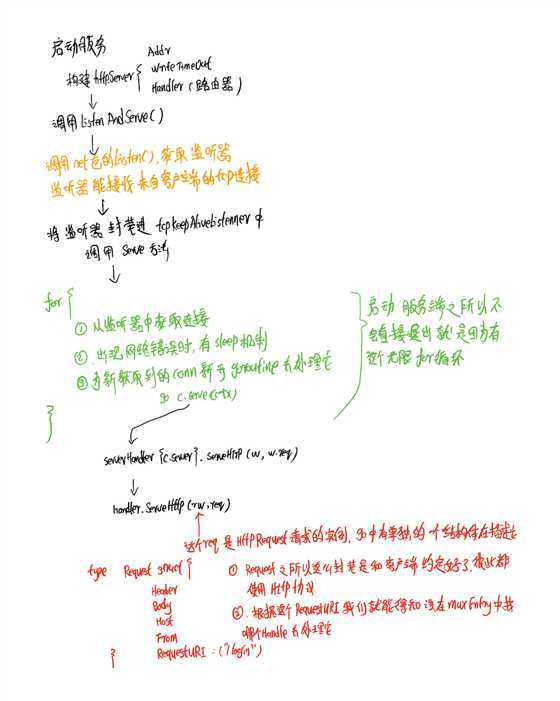 启动服务
构建 http.Server {
Addr
WriteTimeOut
Handler (路由器)
调用 ListenAndServe()
调用 net包的 Listen(), 获取监听器
监听器能接收来自客户端的tcp连接
将监听器封装进 tcpKeepAliveListenner 中
调用 Serve 方法
for {
① 从监听器中获取连接
②. 出现网络错误时, 有 sleep 机制
③ 为新获取到的conn 新开 goroutine 去处理它
go c.serve(ctx)
}
启动 服务端之所以不
会直接退出就是因为有
这个无限 for循环
serverHandler {c.server}. ServeHttp (w, w.req)
handler.ServeHttp (rw, req)
这个req 是 Http Request 请求的实例, go中有单独的一个结构体在描述它
type Request struct {
Header
Body
Host
From
RequestURI : ("/login")
}
① Request 之所以这么封装是和客户端约定好了, 彼此都
使用 Http 协议
②. 根据这个 RequestURI 我们就能得知 该在 muxEntry 中找
哪个Handle 去处理它